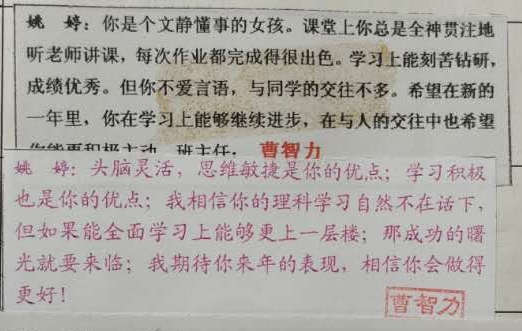 姚 婷：你是个文静懂事的女孩。课堂上你总是全神贯注地
听老师讲课，每次作业都完成得很出色。学习上能刻苦钻研，
成绩优秀。但你不爱言语，与同学的交往不多。希望在新的
一年里，你在学习上能够继续进步，在与人的交往中也希望
你能更积极主动。班主任：曹智力
姚 婷：头脑灵活，思维敏捷是你的优点；学习积极
也是你的优点；我相信你的理科学习自然不在话下，
但如果能全面学习上能够更上一层楼；那成功的曙
光就要来临；我期待你来年的表现，相信你会做得
更好！
曹智力